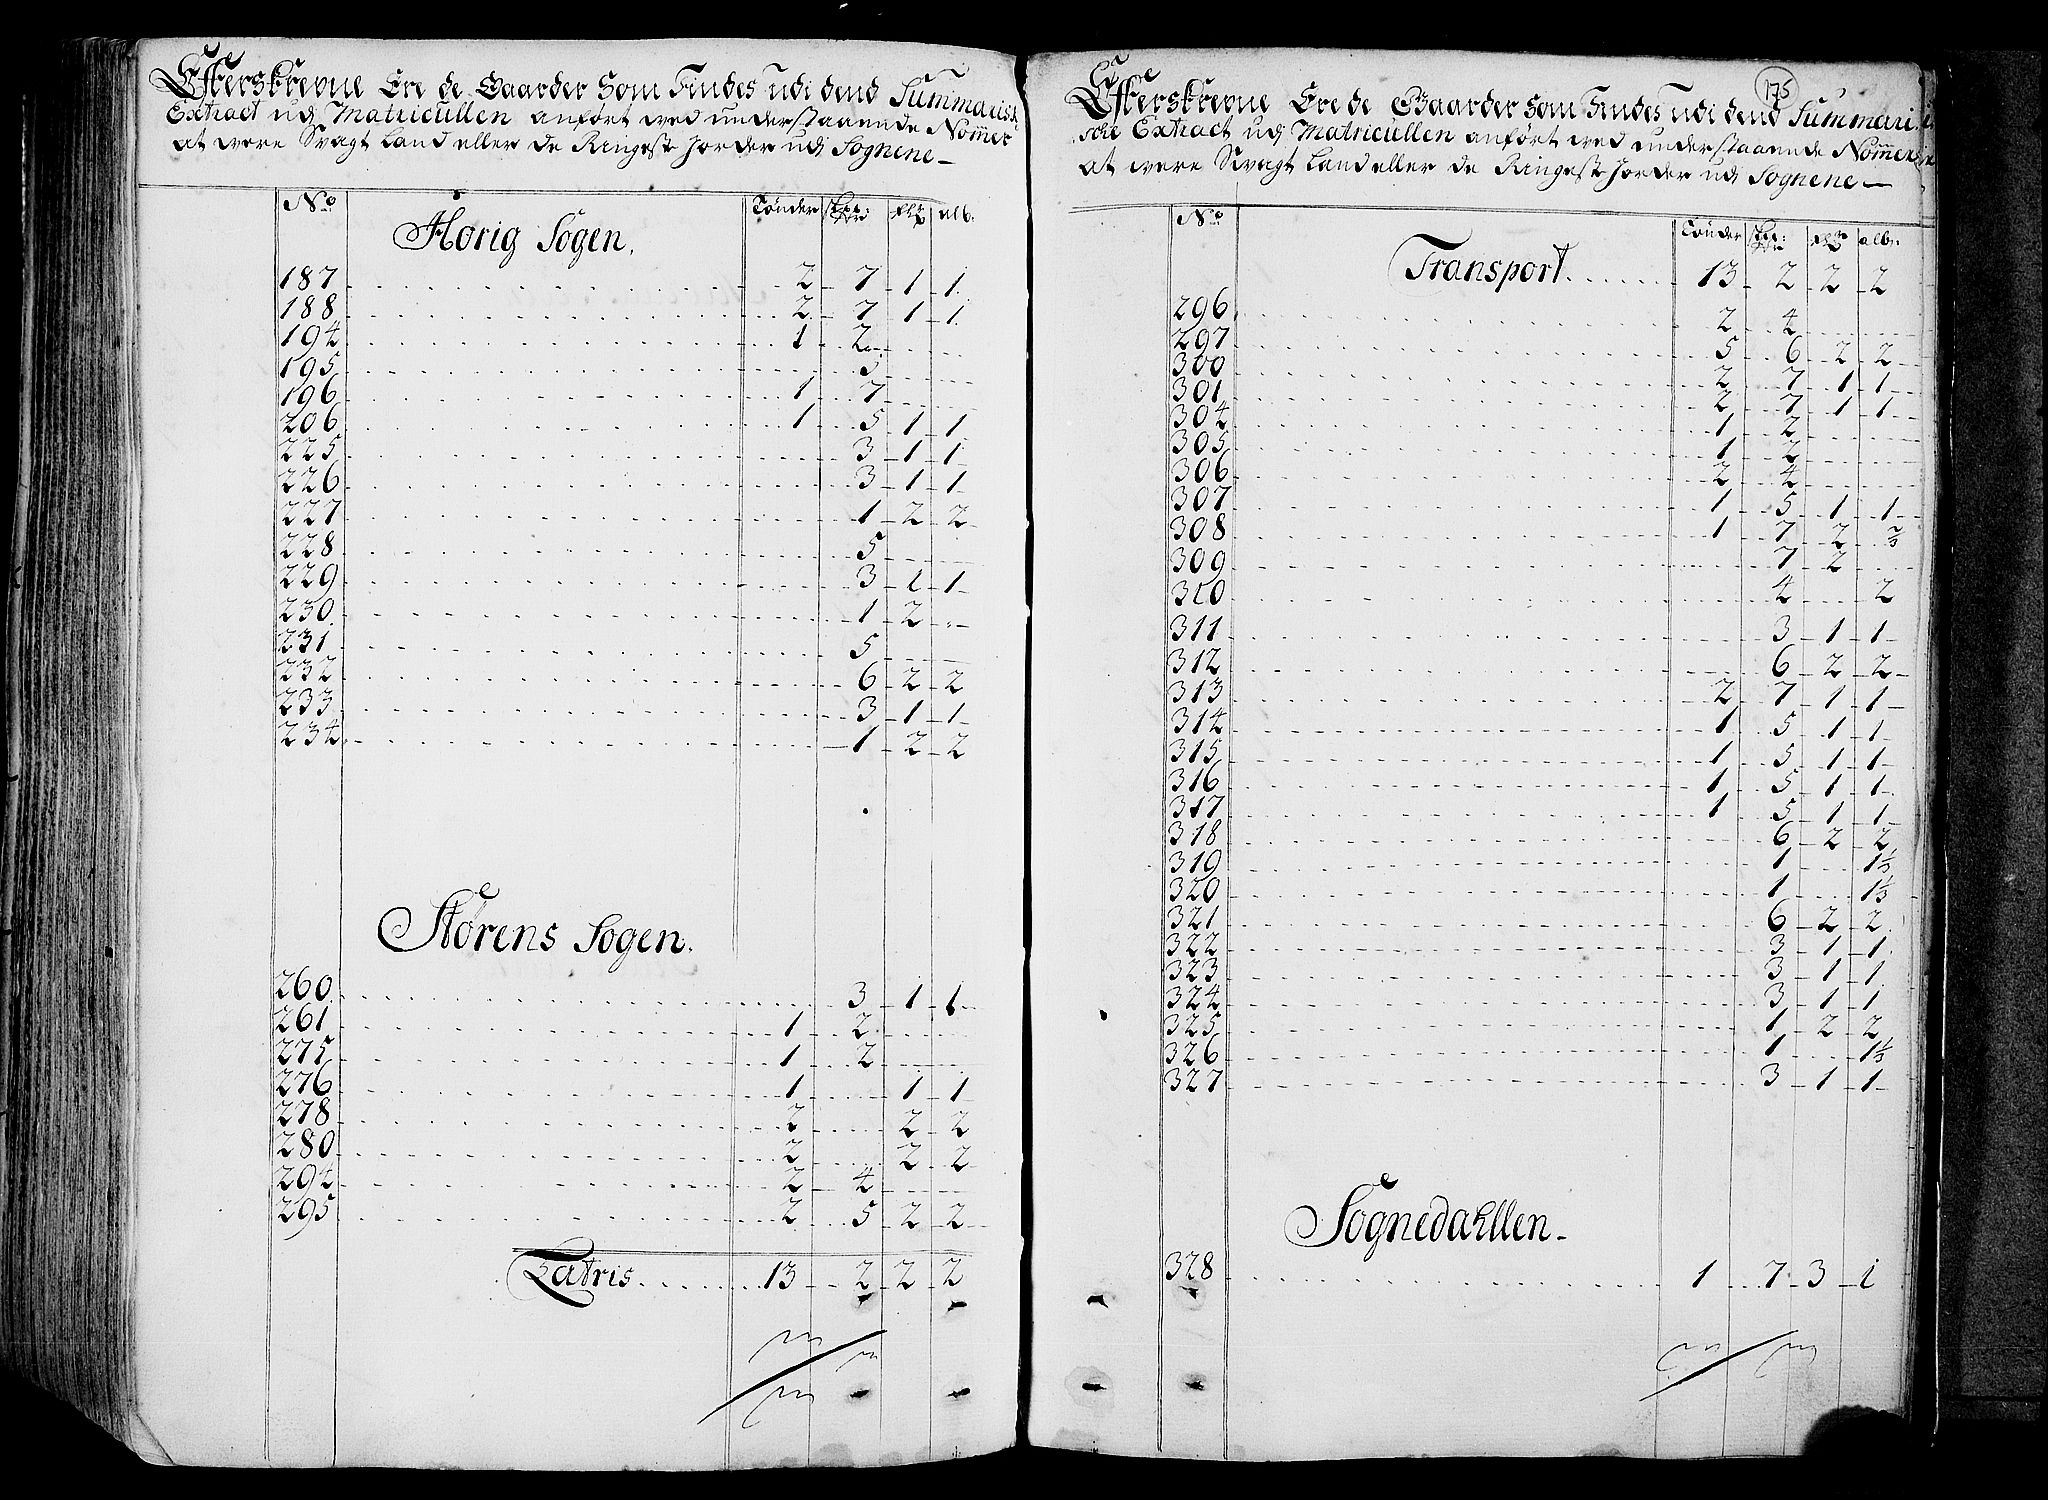 Efferskrevne Ere de Gaarder Som Findes udi dend Summarisk
Extract udj Matricullen anfört ved understaaende Nommer
at were Svagt Land eller de Ringeste Jorder udj Sognene
No Tönder skpr: fhr alb:
Horig Sogen.
187 2 7 1 1
188 2 7 1 1
194 1 2
195 5
196 1 7
206 1 5 1 1
225 3 1 1
226 3 1 1
227 1 2 2
228 5
229 3 1 1
230 1 2
231 5
232 6 2 2
233 3 1 1
234 1 2 2
Störens Sogen.
260 3 1 1
261 1 2
275 1 2
276 1 1 1
278 2 2 2
280 2 2 2
294 2 4
295 2 5 2 2
Latris 13 2 2 2
175
Efferskrevne Ere de Gaarder Som Findes udi dend Summari
sche Extract udj Matricullen anfört ved understaaende Nommer
at were Svagt Land eller de Ringeste Jorder udj Sognene
No Tönder skpr: fhr alb:
Transport 13 2 2 2
296 2 4
297 5 6 2 2
300 2 7 1 1
301 2 7 1 1
304 1 2
305 1 2
306 2 4
307 1 5 1 1
308 1 7 2 2/3
309 7 2
310 4 2
311 3 1 1
312 6 2 2
313 2 7 1 1
314 1 5 1 1
315 1 5 1 1
316 1 5 1 1
317 1 5 1 1
318 6 2 2
319 1 1 1/3
320 1 1 1/3
321 6 2 2
322 3 1 1
323 3 1 1
324 3 1 1
325 1 2 2
326 1 1 1/3
327 3 1 1
Sognedahllen
328 1 7 3 1